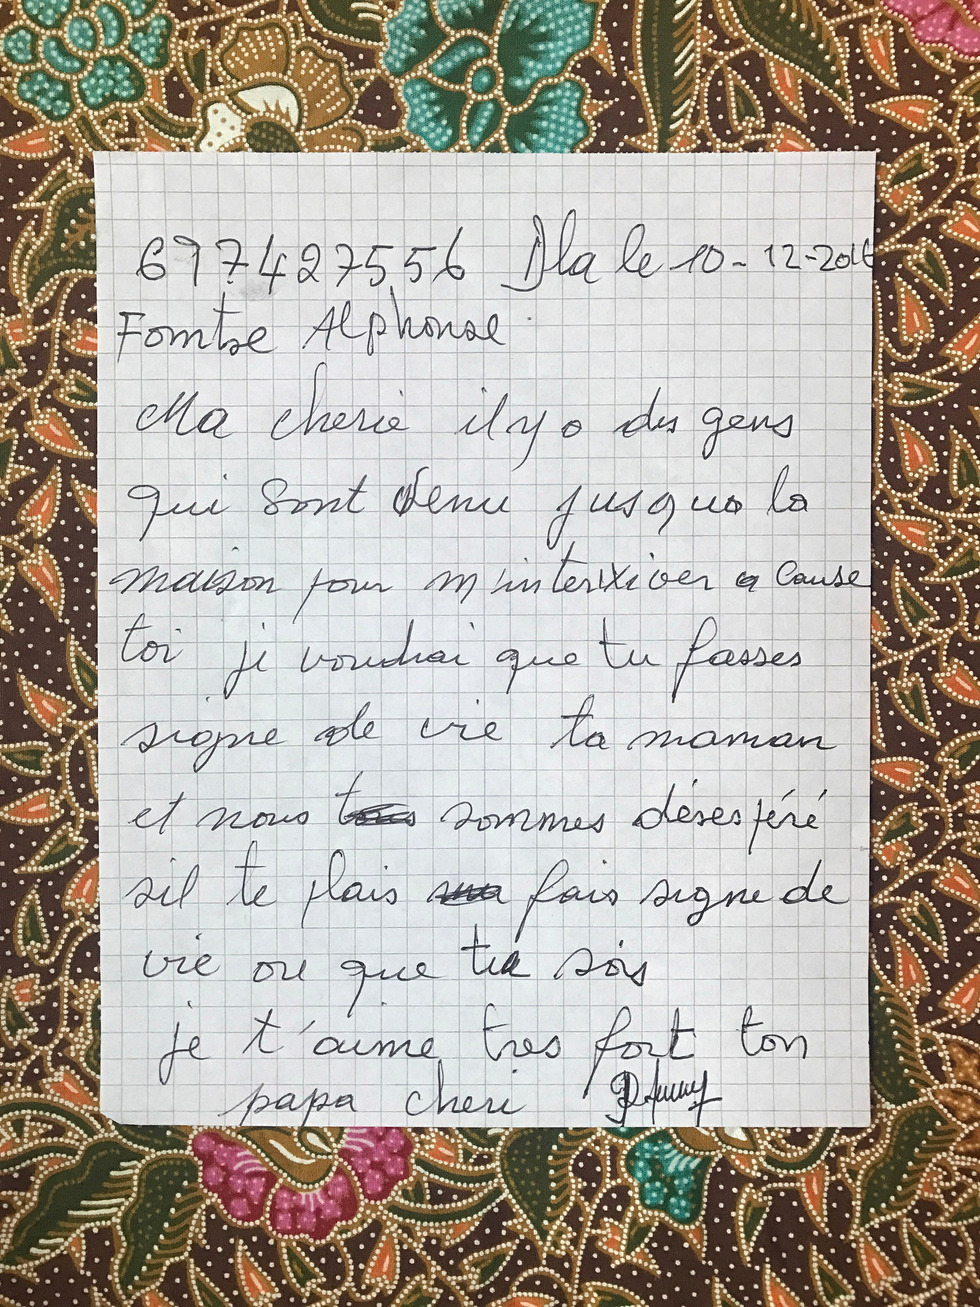 697427556 Dla le 10-12-2016
Fombe Alphonse
Ma cherie il y a des gens
qui sont venu jusqua la
maison pour m'interxiver a cause
toi je voudrai que tu fasses
signe de vie ta maman
et nous sommes désespéré
sil te plais fais signe de
vie ou que tu sois
je t'aime tres fort ton
papa cheri